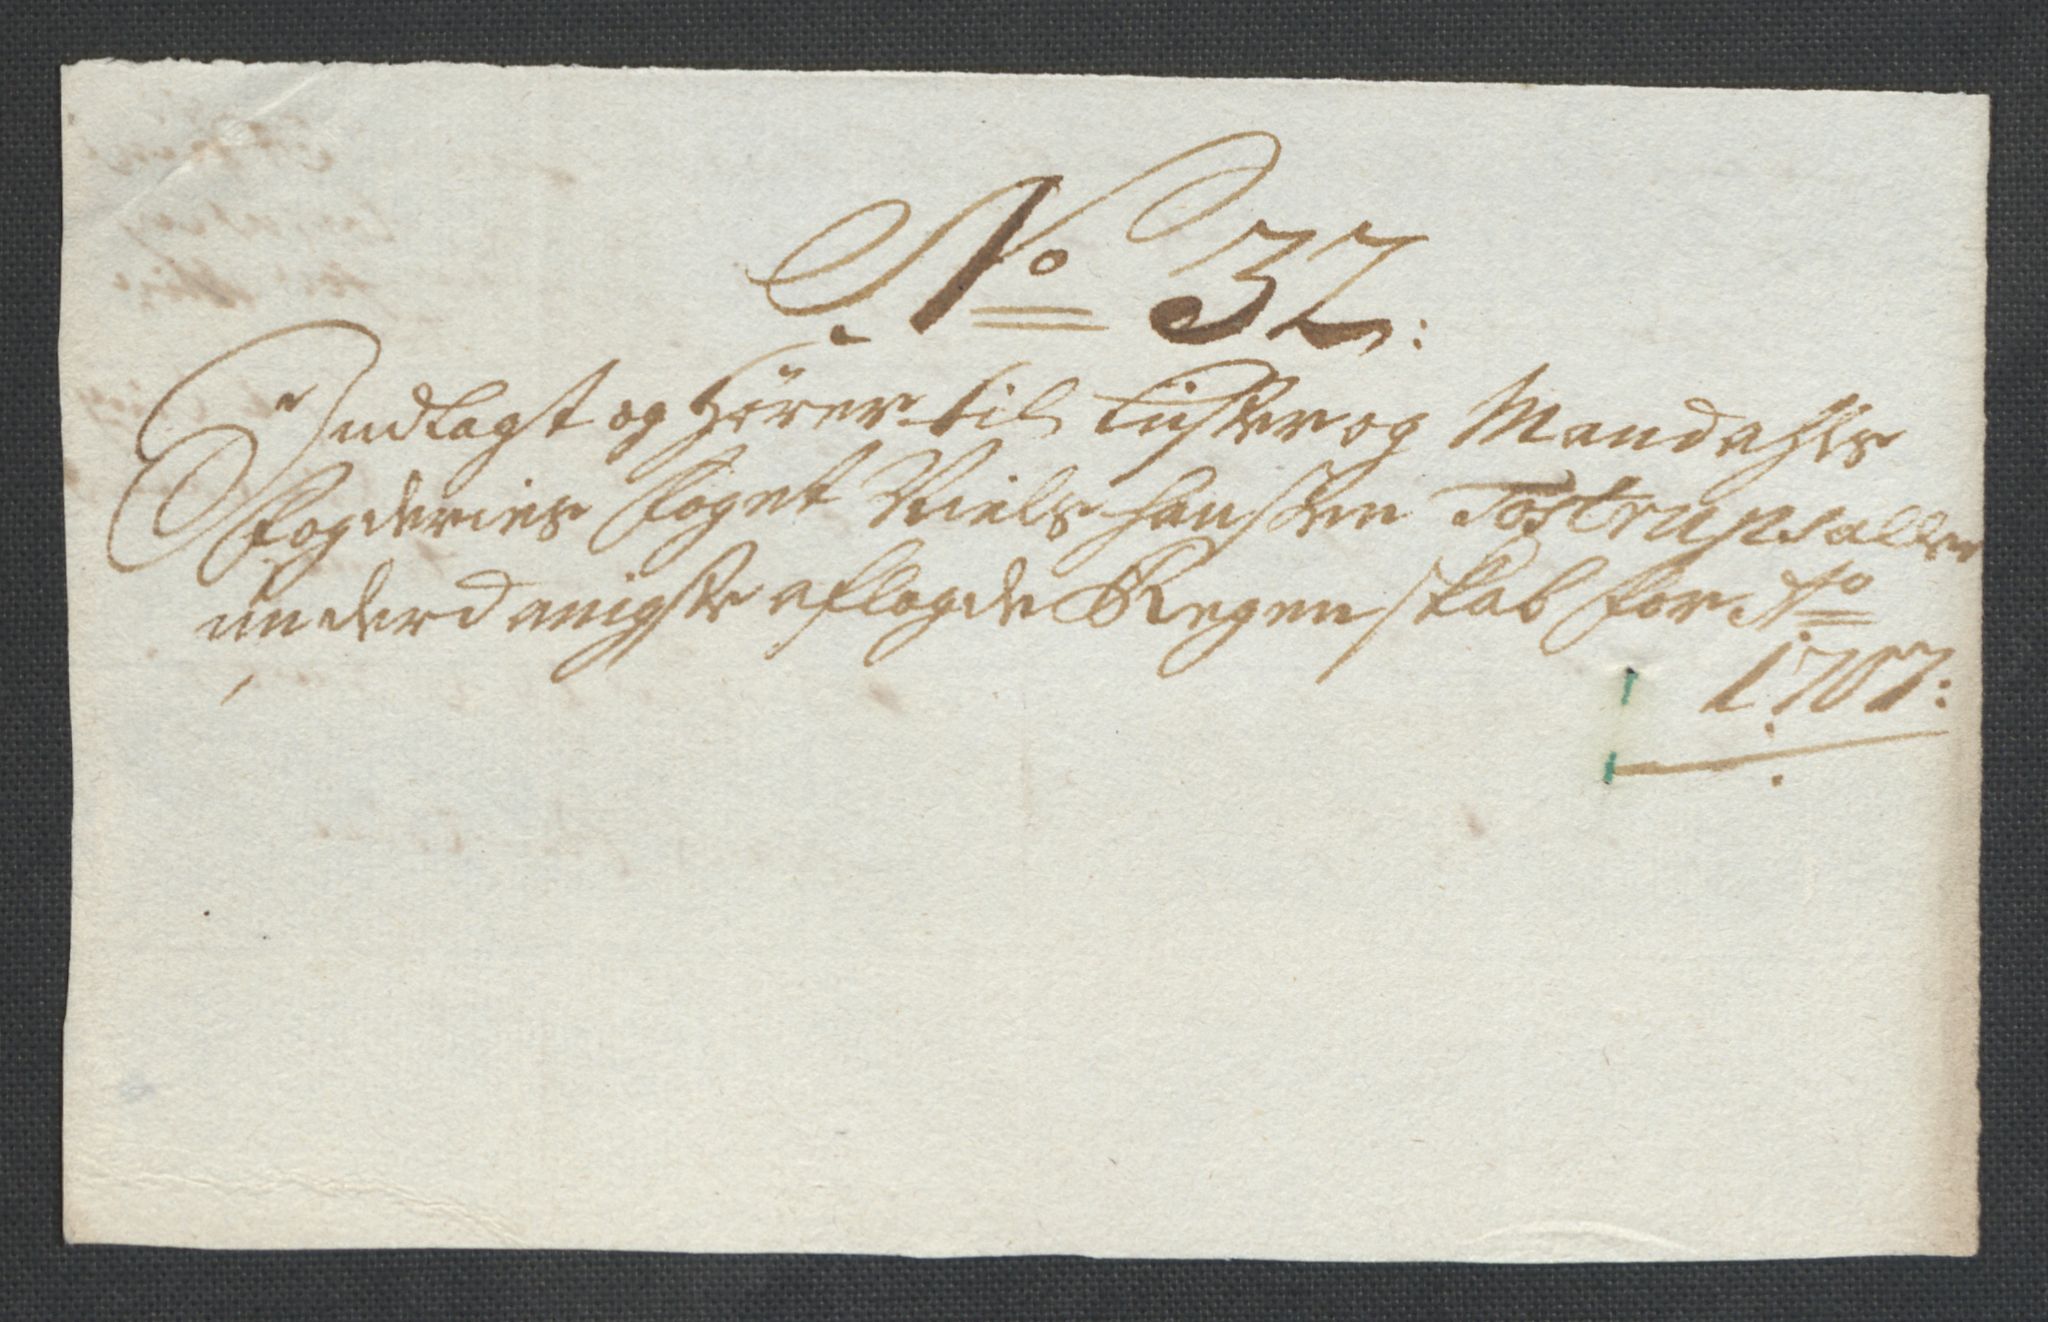 No 32:
Indlagt og Hører til Lister og Mandahls
Fogderies Foget Niels Hanssen Tostrups aller
underdanigste aflagde Regenskab for Ao
1707: